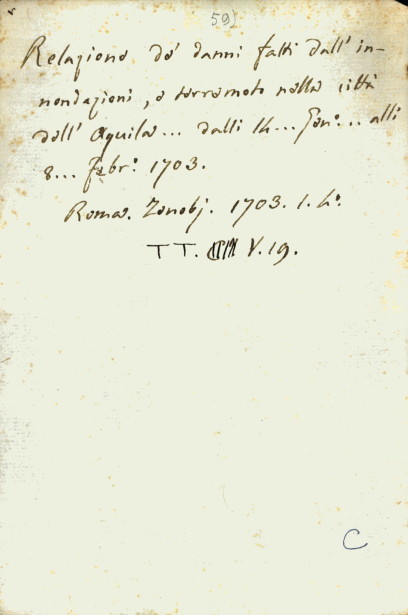 59
Relazione de' danni fatti dall' in-
nondazioni, e terremoto nella città
dell' Aquila... dalli 14... Gen.o... alli
8... Febr.o 1703.
Roma. Zenobj. 1703. 1. 4.o
TT. V. 19.
C